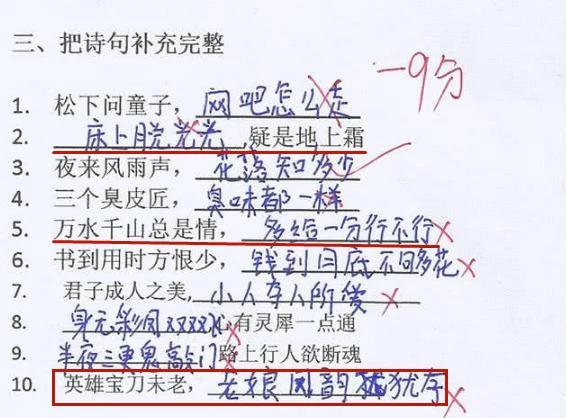 三、把诗句补充完整
-9分
1. 松下问童子，网吧怎么走
2. 床上脱光光，疑是地上霜
3. 夜来风雨声，花落知多少
4. 三个臭皮匠，臭味都一样
5. 万水千山总是情，多给一分行不行
6. 书到用时方恨少，钱到月底不够花
7. 君子成人之美，小人夺人所爱
8. 身无彩凤双双飞 心有灵犀一点通
9. 半夜三更鬼敲门 路上行人欲断魂
10. 英雄宝刀未老，老娘风韵犹存